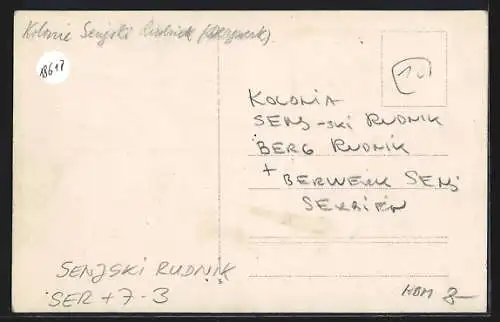 Kolonie Senjski Rudnik (Bergwerk).
18617
10
KOLONIA
SENS-SKI RUDNIK
BERG RUDNIK
+ BERWERK SENJ
SERBIEN
SENJSKI RUDNIK
SER + 7-3
KBM 8-